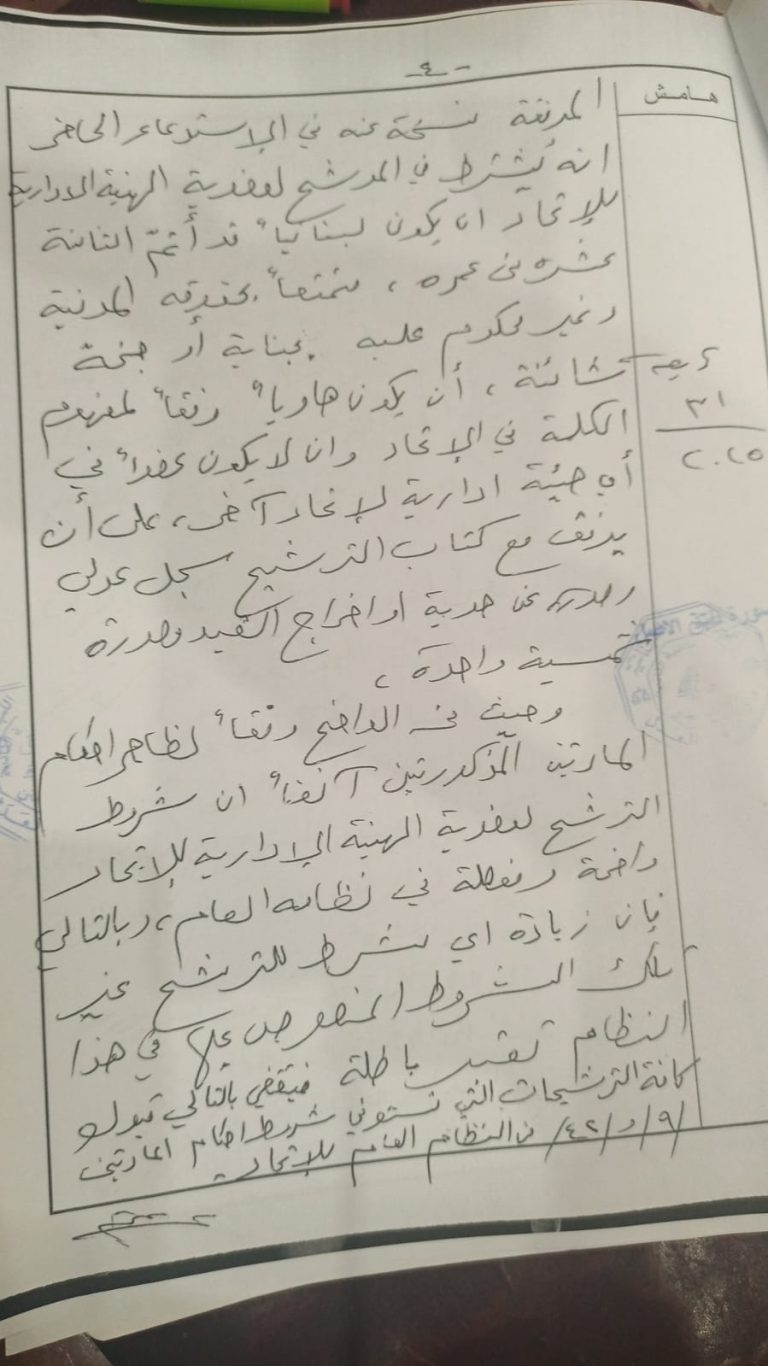 - ٤ -
هامش
المرفقة نسخة عنه في الإستدعاء الحاضر
انه يُشترط في المرشح لعضوية الهيئة الادارية
للإتحاد ان يكون لبنانياً قد أتمّ الثامنة
عشره من عمره ، متمتعاً بحقوقه المدنية
وغير محكوم عليه بجناية أو جنحة
شائنة ، أن يكون هاوياً وفقاً لمفهوم
الكلمة في الإتحاد وان لا يكون عضواً في
أي هيئة ادارية لإتحاد آخر ، على أن
يرفق مع كتاب الترشيح سجل عدلي
عن هوية او اخراج القيد وصورة
شمسية واحدة ،
وحيث من الواضح وفقاً لظاهر احكام
المادتين المذكورتين آنفاً ان شروط
الترشح لعضوية الهيئة الإدارية للإتحاد
واضحة ومفصلة في نظامه العام ، وبالتالي
فإن زيادة اي شرط للترشح غير
تلك الشروط المنصوص عليها في هذا
النظام تعتبر باطلة فيقتضي بالتالي قبول
كافة الترشيحات التي تستوفي شروط احكام المادتين
/٩/ و /٤٢/ من النظام العام للإتحاد
٣١
٢٠٢٥